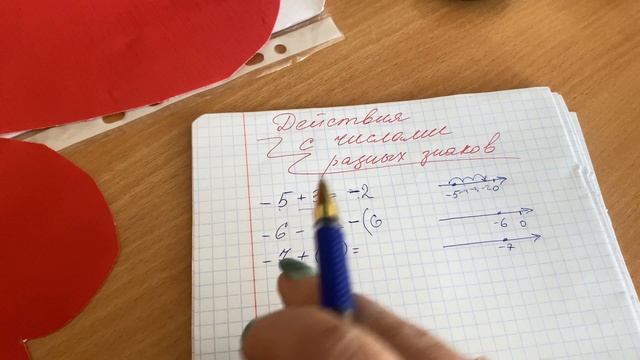 Действия
с числами
разных знаков
-5 + 3 = -2
-6 - -(6
-7 + ( ) =
-5 -4 -3 -2 0
-6 0
-7